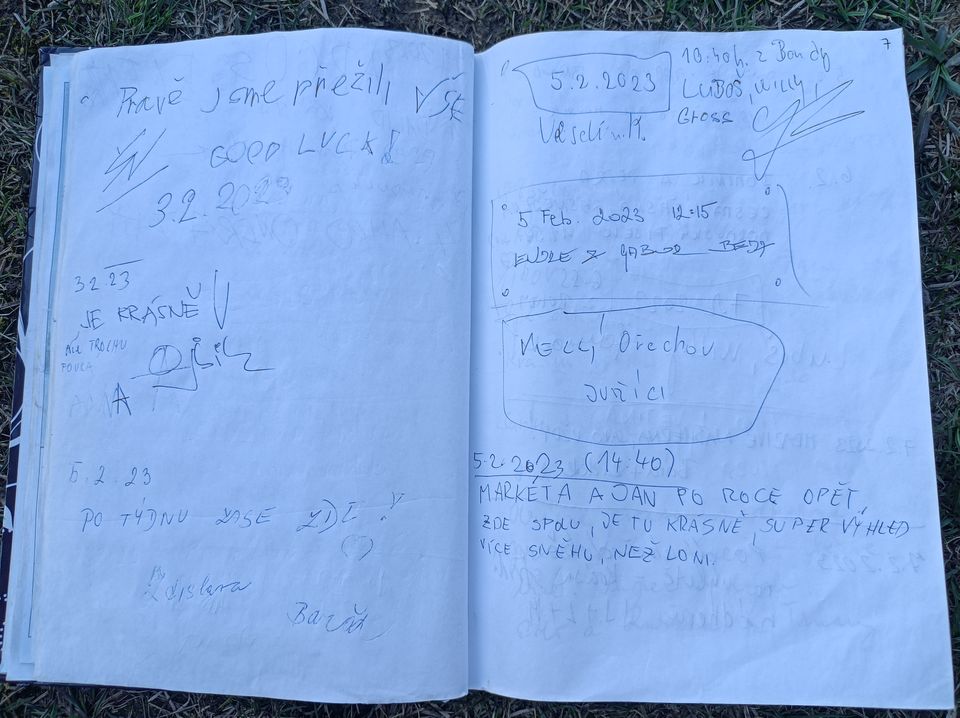 Právě jsme přežili VŠE
GOOD LUCK!
3.2.2023
3.2.23
JE KRÁSNĚ!
ALE TROCHU
FOUKÁ
A
5.2.23
PO TÝDNU ZASE ZDE!
Zdislava
7
5.2.2023
Veselí n. M.
10:40h. z Bon dy
LUBOŠ, WILLY,
Gross
5 Feb. 2023 12:15
Velký Ořechov
Juříci
5.2.2023 (14:40)
MARKÉTA A JAN PO ROCE OPĚT,
ZDE SPOLU, JE TU KRÁSNĚ, SUPER VÝHLED
VÍCE SNĚHU, NEŽ LONI.